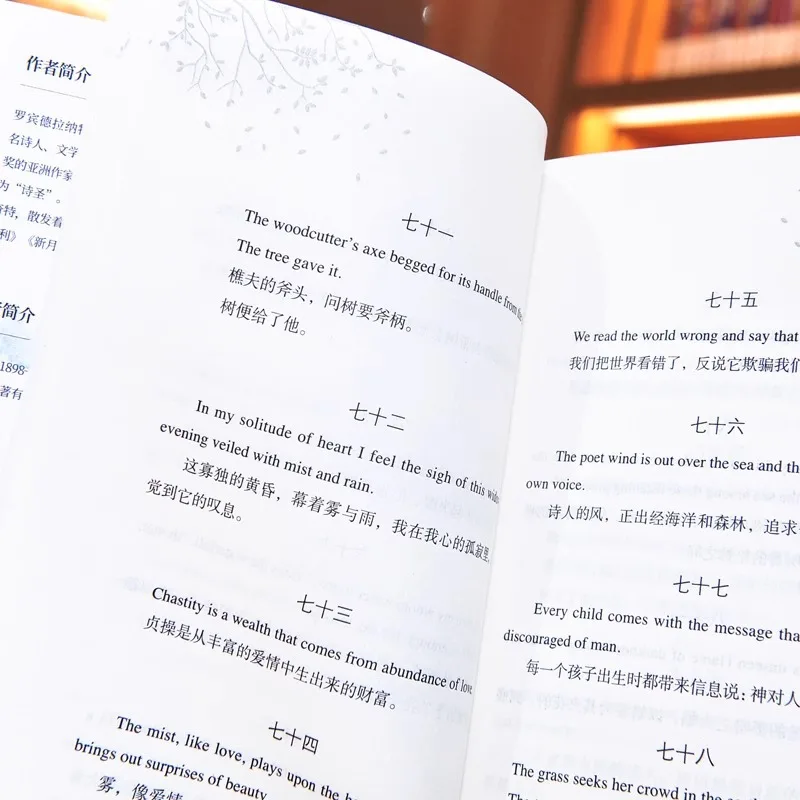 作者简介
罗宾德拉纳
名诗人、文学
奖的亚洲作家
为“诗圣”。
斯特，散发着
利》《新月
者简介
1898-
著有
七十一
The woodcutter’s axe begged for its handle from
The tree gave it.
樵夫的斧头，问树要斧柄。
树便给了他。
七十二
In my solitude of heart I feel the sigh of this
evening veiled with mist and rain.
这寡独的黄昏，幕着雾与雨，我在我心的孤寂里，
觉到它的叹息。
七十三
Chastity is a wealth that comes from abundance of love.
贞操是从丰富的爱情中生出来的财富。
七十四
The mist, like love, plays upon the
brings out surprises of beauty.
雾，像爱情
七十五
We read the world wrong and say that
我们把世界看错了，反说它欺骗我们
七十六
The poet wind is out over the sea and the
own voice.
诗人的风，正出经海洋和森林，追求
七十七
Every child comes with the message that
discouraged of man.
每一个孩子出生时都带来信息说：神对人
七十八
The grass seeks her crowd in the